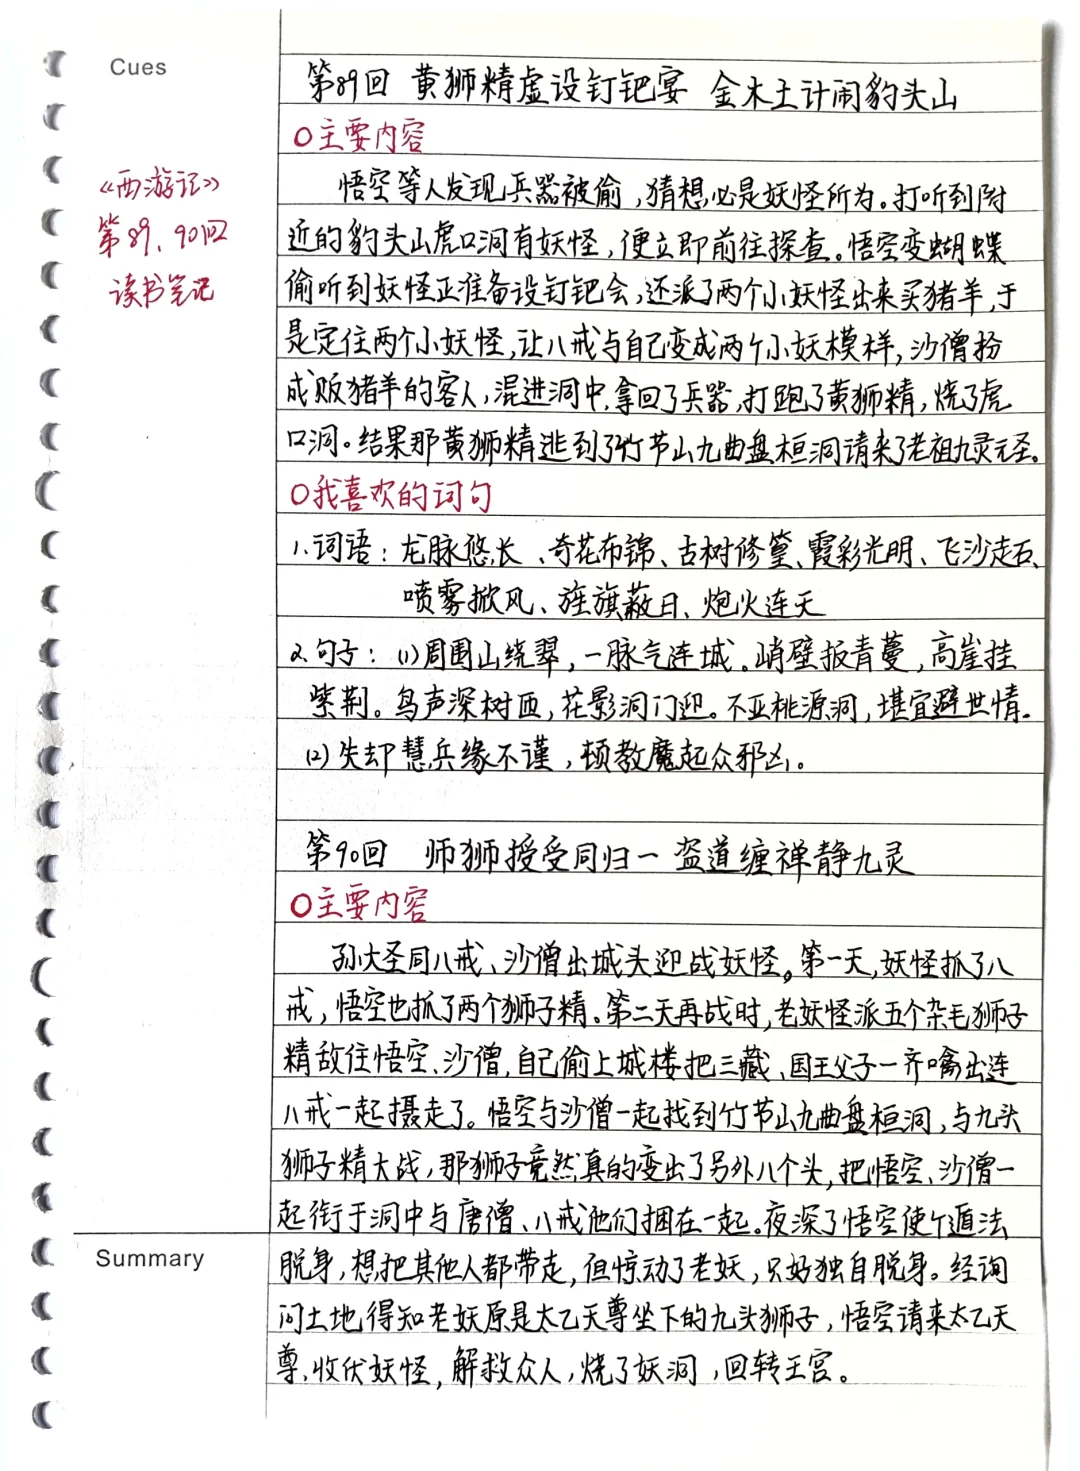 Cues
《西游记》
第89、90回
读书笔记
第89回 黄狮精虚设钉钯宴 金木土计闹豹头山
○主要内容
悟空等人发现兵器被偷,猜想必是妖怪所为。打听到附
近的豹头山虎口洞有妖怪,便立即前往探查。悟空变蝴蝶
偷听到妖怪正准备设钉钯会,还派了两个小妖怪出来买猪羊,于
是定住两个小妖怪,让八戒与自己变成两个小妖模样,沙僧扮
成贩猪羊的客人,混进洞中,拿回了兵器,打跑了黄狮精,烧了虎
口洞。结果那黄狮精逃到了竹节山九曲盘桓洞请来了老祖九灵元圣。
○我喜欢的词句
1.词语:龙脉悠长、奇花布锦、古树修篁、霞彩光明、飞沙走石、
喷雾掀风、旌旗蔽日、炮火连天
2.句子:(1)周围山绕翠,一脉气连城。峭壁扳青蔓,高崖挂
紫荆。鸟声深树匝,花影洞门迎。不亚桃源洞,堪宜避世情。
(2)失却慧兵缘不谨,顿教魔起众邪凶。
第90回 师狮授受同归一 盗道缠禅静九灵
○主要内容
孙大圣同八戒、沙僧出城头迎战妖怪。第一天,妖怪抓了八
戒,悟空也抓了两个狮子精。第二天再战时,老妖怪派五个杂毛狮子
精敌住悟空、沙僧,自己偷上城楼把三藏、国王父子一齐噙出连
八戒一起摄走了。悟空与沙僧一起找到竹节山九曲盘桓洞,与九头
狮子精大战,那狮子竟然真的变出了另外八个头,把悟空、沙僧一
起衔于洞中与唐僧、八戒他们捆在一起。夜深了悟空使个遁法
Summary
脱身,想把其他人都带走,但惊动了老妖,只好独自脱身。经询
问土地得知老妖原是太乙天尊坐下的九头狮子,悟空请来太乙天
尊,收伏妖怪,解救众人,烧了妖洞,回转王宫。